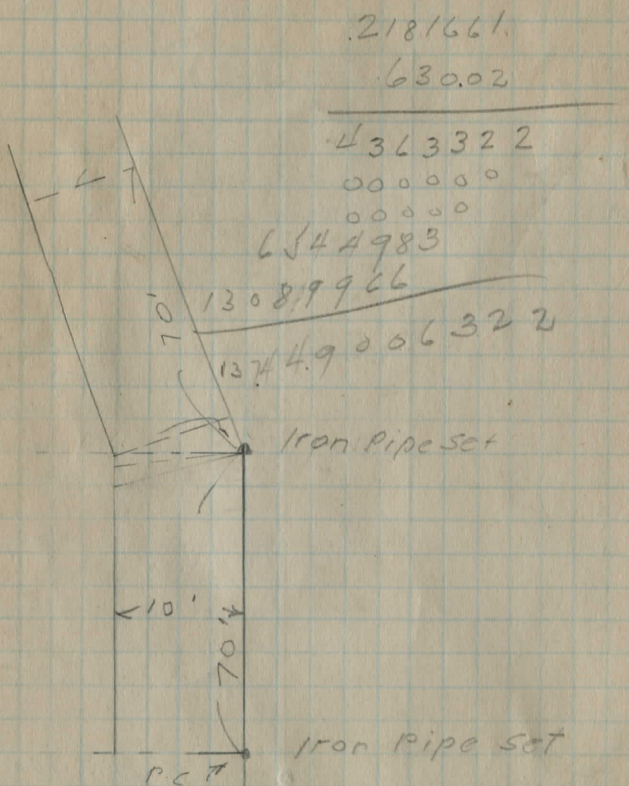 .2181661
630.02
4363322
000000
00000
6544983
13089966
137.449006322
70'
Iron Pipe set
10'
70'
Iron Pipe Set
P.C.